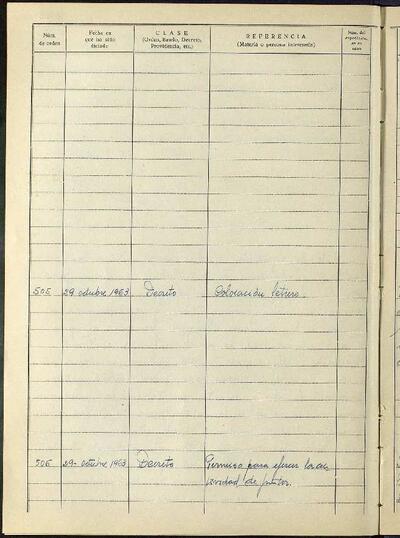 Núm. de orden
Fecha en que ha sido dictado
CLASE
(Orden, Bando, Decreto, Providencia, etc.)
REFERENCIA
(Materia o persona interesada)
Núm. del expediente, en su caso
505 29 octubre 1963 Decreto Colocación letrero.
506 29-octubre 1963 Decreto Permiso para ejercer la ac
tividad de